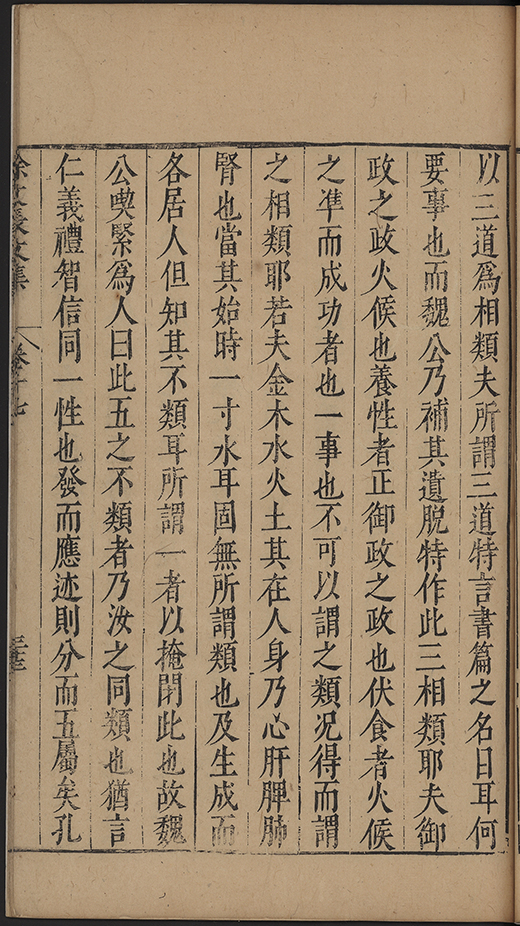 以三道爲相類夫所謂三道特言書篇之名目耳何
要事也而魏公乃補其遺脫特作此三相類耶夫御
政之政火候也養性者正御政之政也伏食者火候
之凖而成功者也一事也不可以謂之類况得而謂
之相類耶若夫金木水火土其在人身乃心肝脾肺
腎也當其始時一寸水耳固無所謂類也及生成而
各居人但知其不類耳所謂一者以掩閉此也故魏
公喫緊爲人曰此五之不類者乃汝之同類也猶言
仁義禮智信同一性也發而應迹則分而五屬矣孔
徐文長文集 卷十七